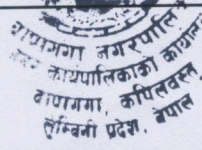 बाणगंगा नगरपालिका
नगर कार्यपालिकाको कार्यालय
बाणगंगा, कपिलवस्तु
लुम्बिनी प्रदेश, नेपाल